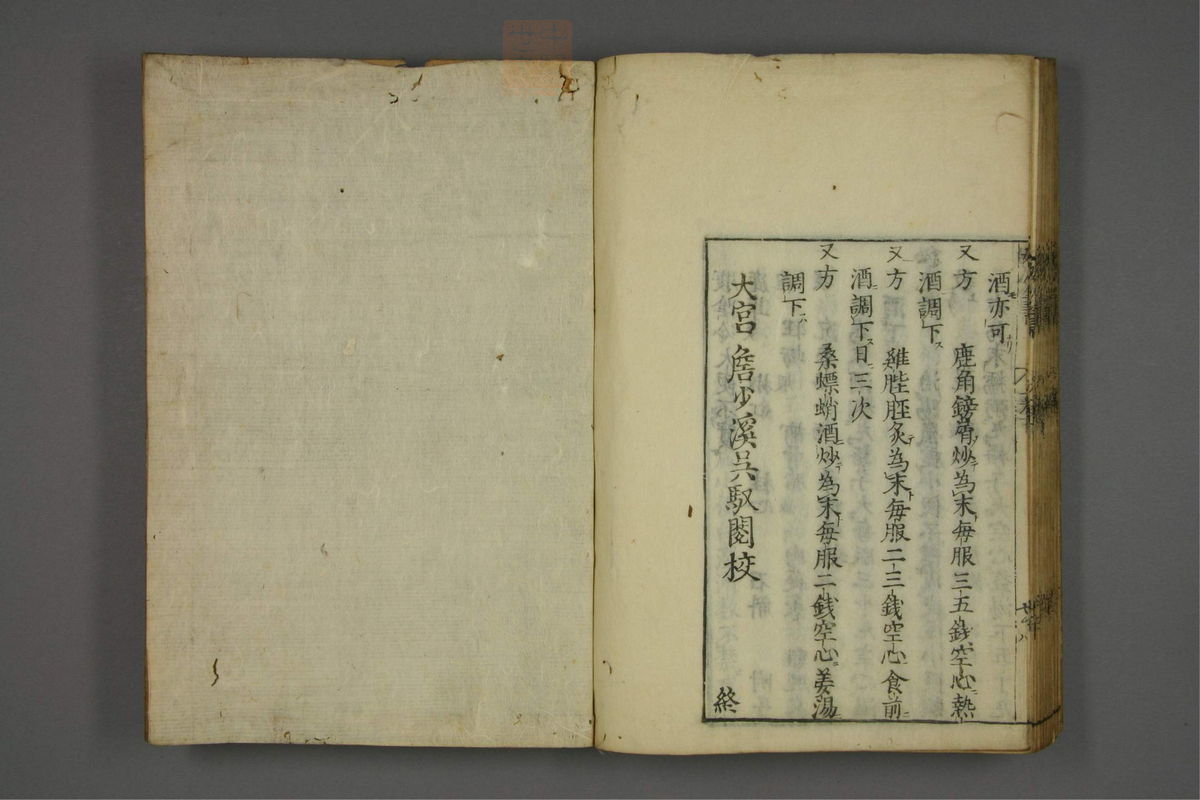 酒亦可
又方　鹿角鎊屑炒為末毎服三五銭空心熱
酒調下
又方　雞䏶胵炙為末毎服二三銭空心食前
酒調下日三次
又方　桑螵蛸酒炒為末毎服二銭空心姜湯
調下
大宮詹少溪呉馭閲校
終